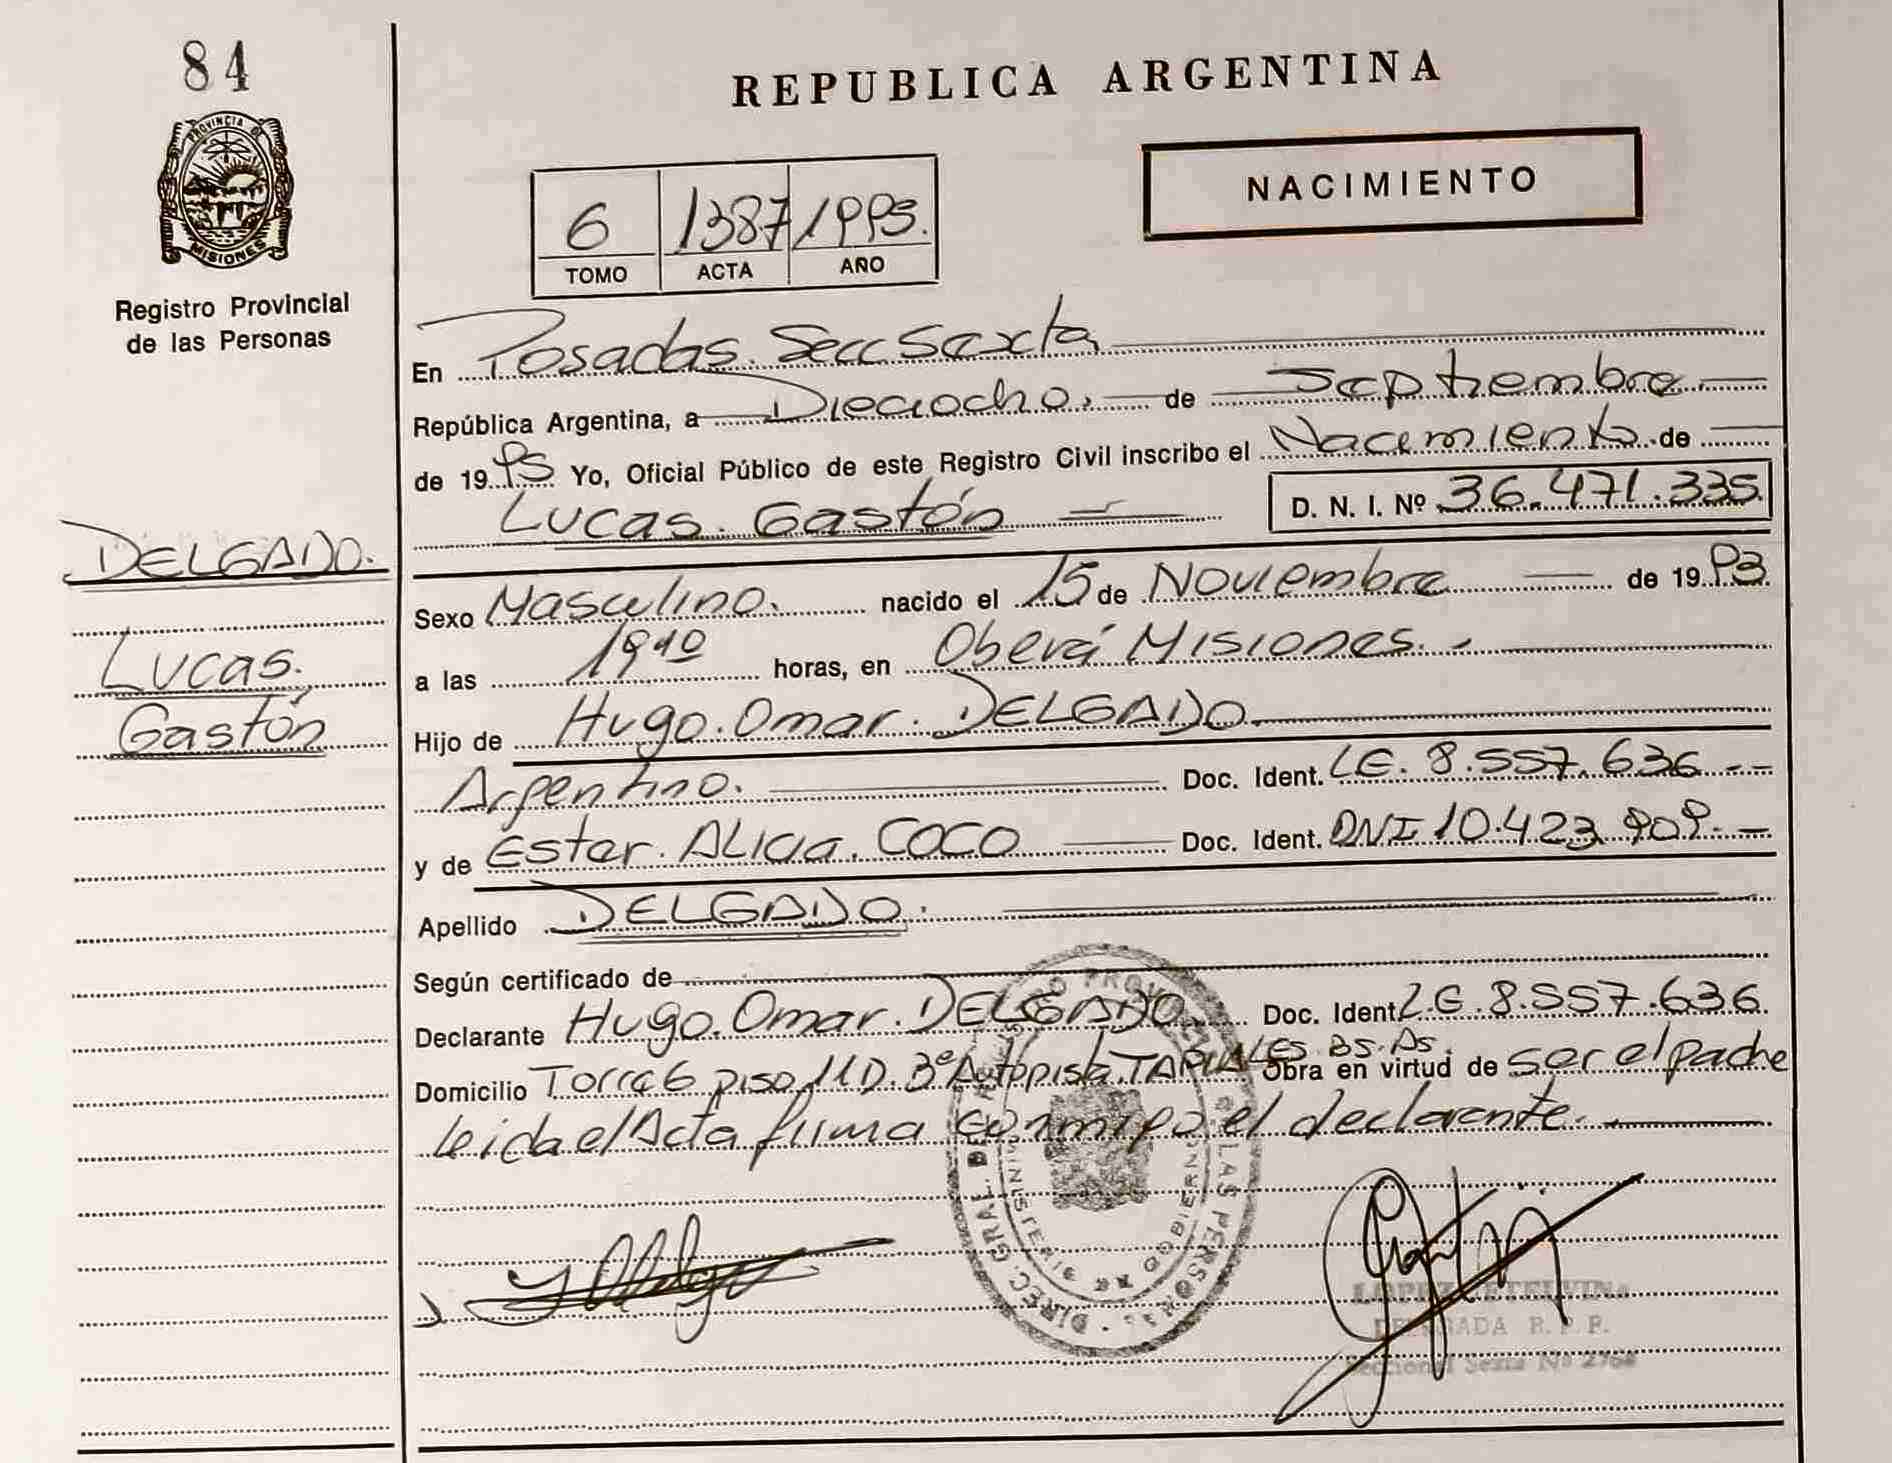 84
REPUBLICA ARGENTINA
PROVINCIA DE
MISIONES
NACIMIENTO
6 1387 1995.
TOMO ACTA AÑO
Registro Provincial
de las Personas
En Posadas. Secc Sexta
República Argentina, a Dieciocho. de Septiembre
de 1995 Yo, Oficial Público de este Registro Civil inscribo el Nacimiento de
Lucas. Gastón D. N. I. Nº 36.471.335.
DELGADO.
Lucas.
Gastón
Sexo Masculino. nacido el 15 de Noviembre de 1993.
a las 19 10 horas, en Oberá Misiones.
Hijo de Hugo. Omar. DELGADO.
Argentino. Doc. Ident. LE. 8.557.636
y de Ester. Alicia. COCO Doc. Ident. DNI 10.423.909.
Apellido DELGADO.
Según certificado de
Declarante Hugo. Omar. DELGADO Doc. Ident. L.E. 8.557.636.
Domicilio Torre 6 piso 11 D. 3º Autopista TAPIALES. BS. As. Obra en virtud de ser el padre
leida el Acta firma conmigo el declarante.
DIREC. GRAL. DEL PROVINCIAL DE LAS PERSONAS
MINISTERIO DE GOBIERNO
LOPEZ ETELVINA
DELEGADA R. P. P.
Seccional Sexta Nº 2768